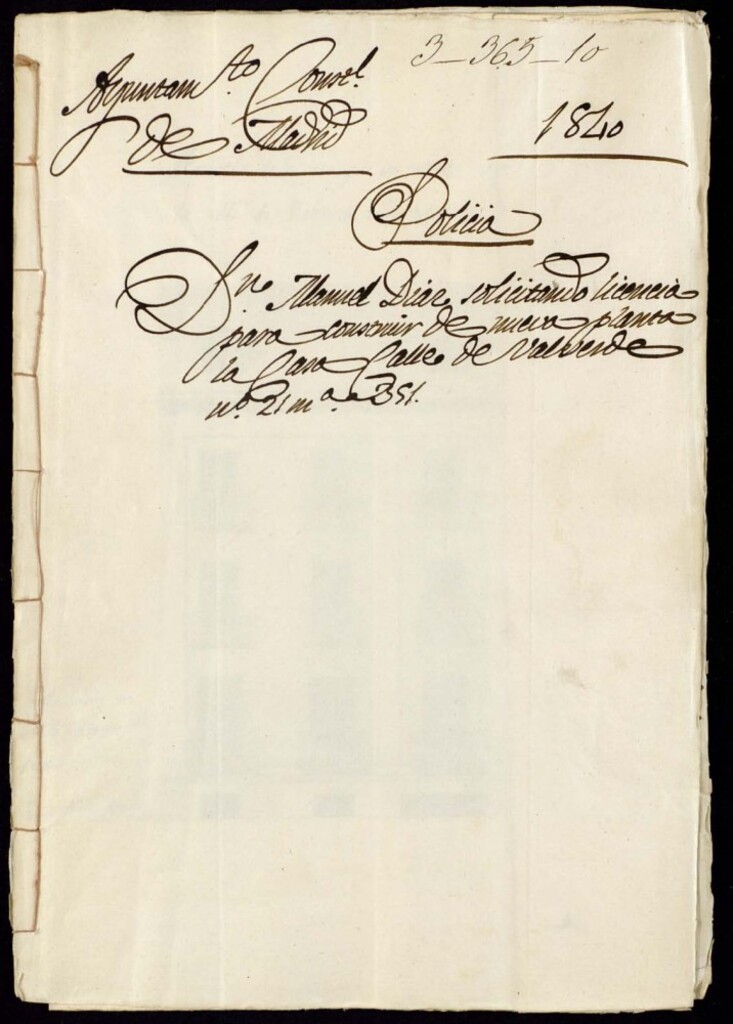 3-365-10
Ayuntam.to Const.l
de Madrid
1840
Policia
D.n Manuel Diaz, solicitando licencia
para construir de nueva planta
la Casa Calle de Valverde
n.o 21 m.a 351.